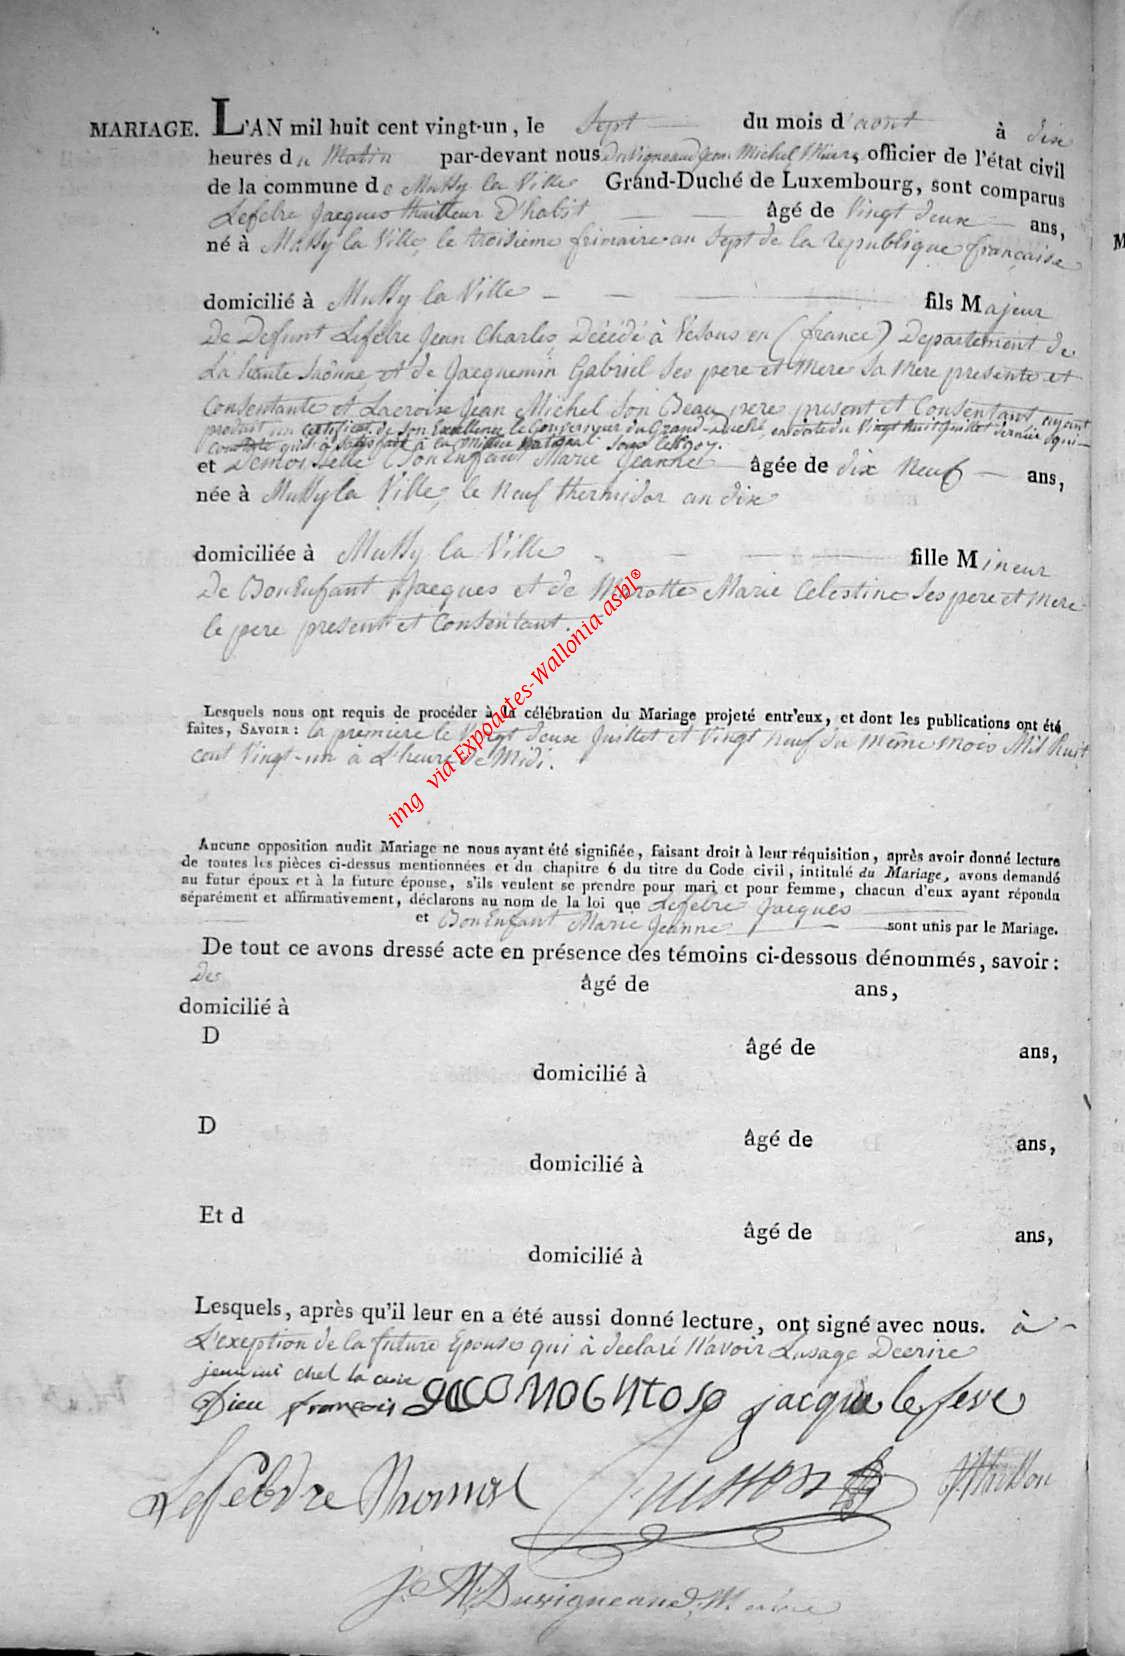 MARIAGE. L'AN mil huit cent vingt-un, le Sept du mois d'aout à dix
heures du Matin par-devant nous Duvigneaud Jean Michel Maire, officier de l'état civil
de la commune de Mussy la Ville Grand-Duché de Luxembourg, sont comparus
Lefebre Jacques thailleur D'habit âgé de Vingt deux ans,
né à Mussy la Ville, le troisieme frimaire an Sept de la republique française
domicilié à Mussy la Ville fils Majeur
De Defunt Lefebre Jean Charles Décédé à Vesous en (france) Departement de
La haute Saônne, et de Jacquemin Gabriel Ses pere et Mere Sa Mere presente et
Consentante et Lacroix Jean Michel Son Beau pere present et Consentant ayant
produit un certificat de Son Excellence le Gouverneur du Grand-Duché, en date du Vingt huit Juillet dernier qui
constate qu'il a satisfait à la milice national Sous le
et Demoiselle BonEnfant Marie Jeanne âgée de dix Neuf ans,
née à Mussy la Ville, le Neuf thermidor an dix
domiciliée à Mussy la Ville fille Mineur
De BonEnfant Jacques et de Marotte Marie Celestine Ses pere et Mere
le pere present et Consentant.
Lesquels nous ont requis de procéder à la célébration du Mariage projeté entr'eux, et dont les publications ont été
faites, SAVOIR : la premiere le Vingt deux Juillet et Vingt Neuf du Même Mois Mil huit
cent Vingt-un à L'heure de Midi.
img via Expoactes-Wallonia asbl®
Aucune opposition audit Mariage ne nous ayant été signifiée, faisant droit à leur réquisition, après avoir donné lecture
de toutes les pièces ci-dessus mentionnées et du chapitre 6 du titre du Code civil, intitulé du Mariage, avons demandé
au futur époux et à la future épouse, s'ils veulent se prendre pour mari et pour femme, chacun d'eux ayant répondu
séparément et affirmativement, déclarons au nom de la loi que Lefebre Jacques
et BonEnfant Marie Jeanne sont unis par le Mariage.
De tout ce avons dressé acte en présence des témoins ci-dessous dénommés, savoir :
Des âgé de ans,
domicilié à
D âgé de ans,
domicilié à
D âgé de ans,
domicilié à
Et d âgé de ans,
domicilié à
Lesquels, après qu'il leur en a été aussi donné lecture, ont signé avec nous. à
L'exeption de la future Epouse qui à declaré N'avoir Lusage Decrire
Dieu françois jacque lefevre
Lefebvre Thomas
J. M. Duvigneaud, Maire